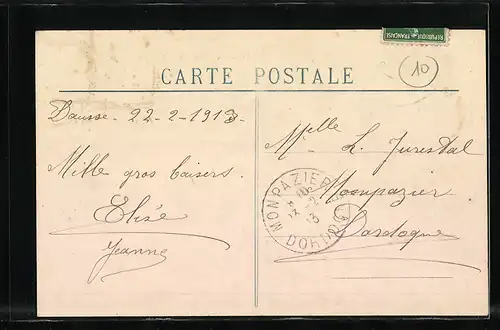 REPUBLIQUE FRANÇAISE
10
CARTE POSTALE
Dausse - 22-2-1913-
Mille gros baisers.
Elise
Jeanne
Melle L. Jurestal
Monpazier
Dordogne
MONPAZIER
-2
13
DORDOGNE